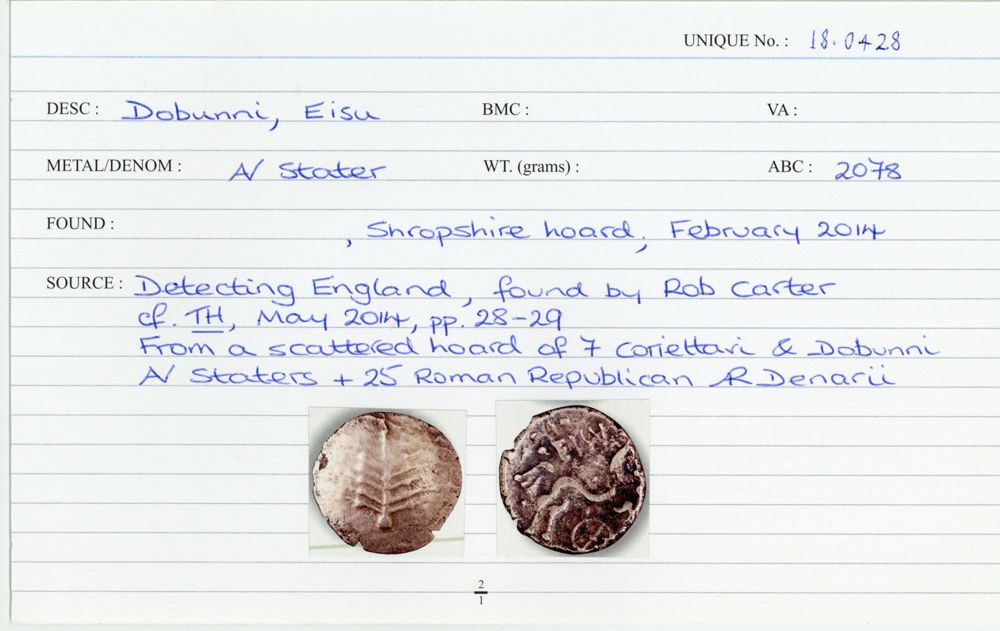 UNIQUE No. : 18.0428
DESC : Dobunni, Eisu BMC : VA :
METAL/DENOM : A/ Stater WT. (grams) : ABC : 2078
FOUND : , Shropshire hoard, February 2014
SOURCE : Detecting England, found by Rob Carter
cf. TH, May 2014, pp. 28-29
From a scattered hoard of 7 Corieltavi & Dobunni
A/ Staters + 25 Roman Republican AR Denarii
2
1